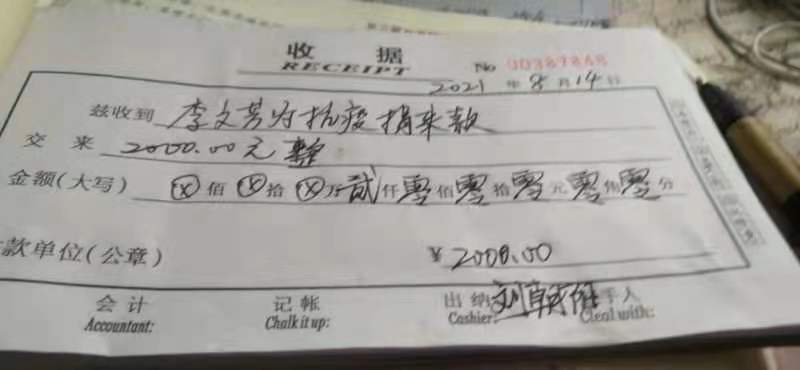 收 据
RECEIPT No 00387848
2021 年 8 月 14 日
兹收到 李文芳为抗疫捐来款
交 来 2000.00元整
金额(大写) ⊗佰⊗拾⊗万贰仟零佰零拾零元零角零分
款单位(公章) ¥2000.00
会计 记帐 出纳 手人
Accountant: Chalk it up: Cashier: Cleal with: